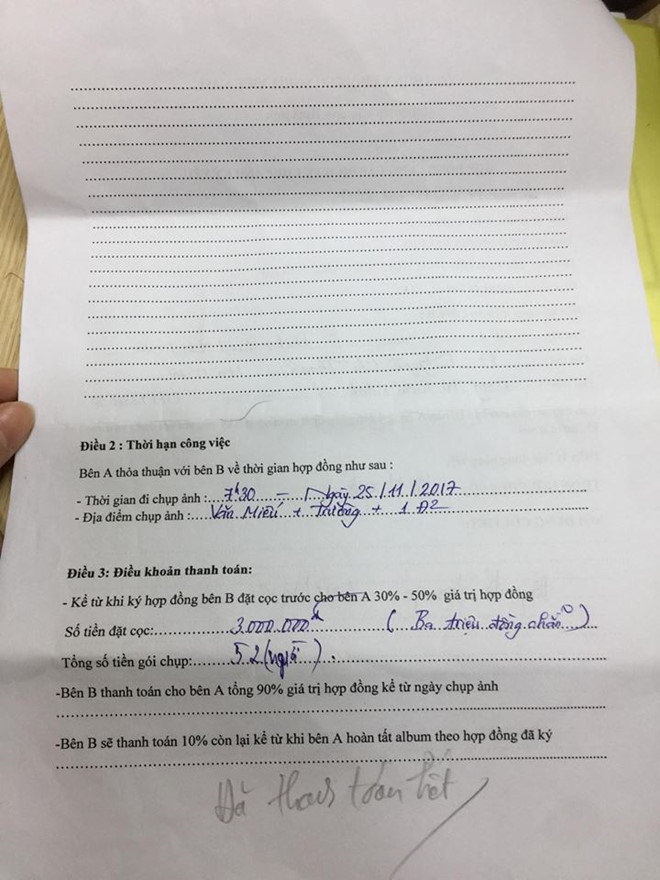 Điều 2 : Thời hạn công việc
Bên A thỏa thuận với bên B về thời gian hợp đồng như sau :
- Thời gian đi chụp ảnh : 7h30 – Ngày 25/11/2017
- Địa điểm chụp ảnh : Văn Miếu + Trường + 1 Đ2
Điều 3: Điều khoản thanh toán:
- Kể từ khi ký hợp đồng bên B đặt cọc trước cho bên A 30% - 50% giá trị hợp đồng
Số tiền đặt cọc: 3.000.000đ ( Ba triệu đồng chẵn )
Tổng số tiền gói chụp: 52 (người) .
-Bên B thanh toán cho bên A tổng 90% giá trị hợp đồng kể từ ngày chụp ảnh
-Bên B sẽ thanh toán 10% còn lại kể từ khi bên A hoàn tất album theo hợp đồng đã ký
Đã thanh toán hết